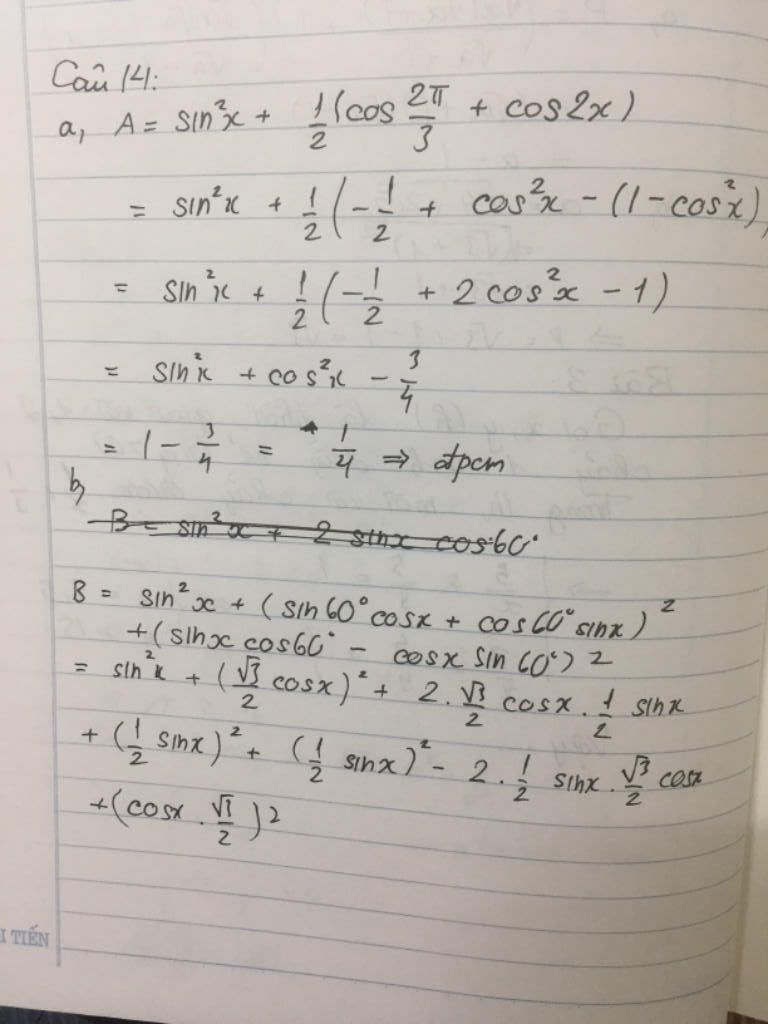 Câu 14:
a, A = sin²x + 1/2 (cos 2π/3 + cos2x)
= sin²x + 1/2 (-1/2 + cos²x - (1 - cos²x)
= sin²x + 1/2 (-1/2 + 2cos²x - 1)
= sin²x + cos²x - 3/4
= 1 - 3/4 = 1/4 ⇒ đpcm
b,
B = sin²x + 2 sinx cos60°
B = sin²x + (sin60°cosx + cos60°sinx)²
+ (sinx cos60° - cosx sin60°)²
= sin²x + (√3/2 cosx)² + 2 . √3/2 cosx . 1/2 sinx
+ (1/2 sinx)² + (1/2 sinx)² - 2 . 1/2 sinx . √3/2 cosx
+ (cosx . √3/2)²
I TIẾN